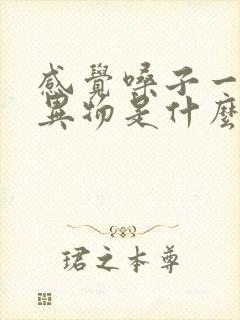 感覺嗓子一
異物是什麼
珺之本尊